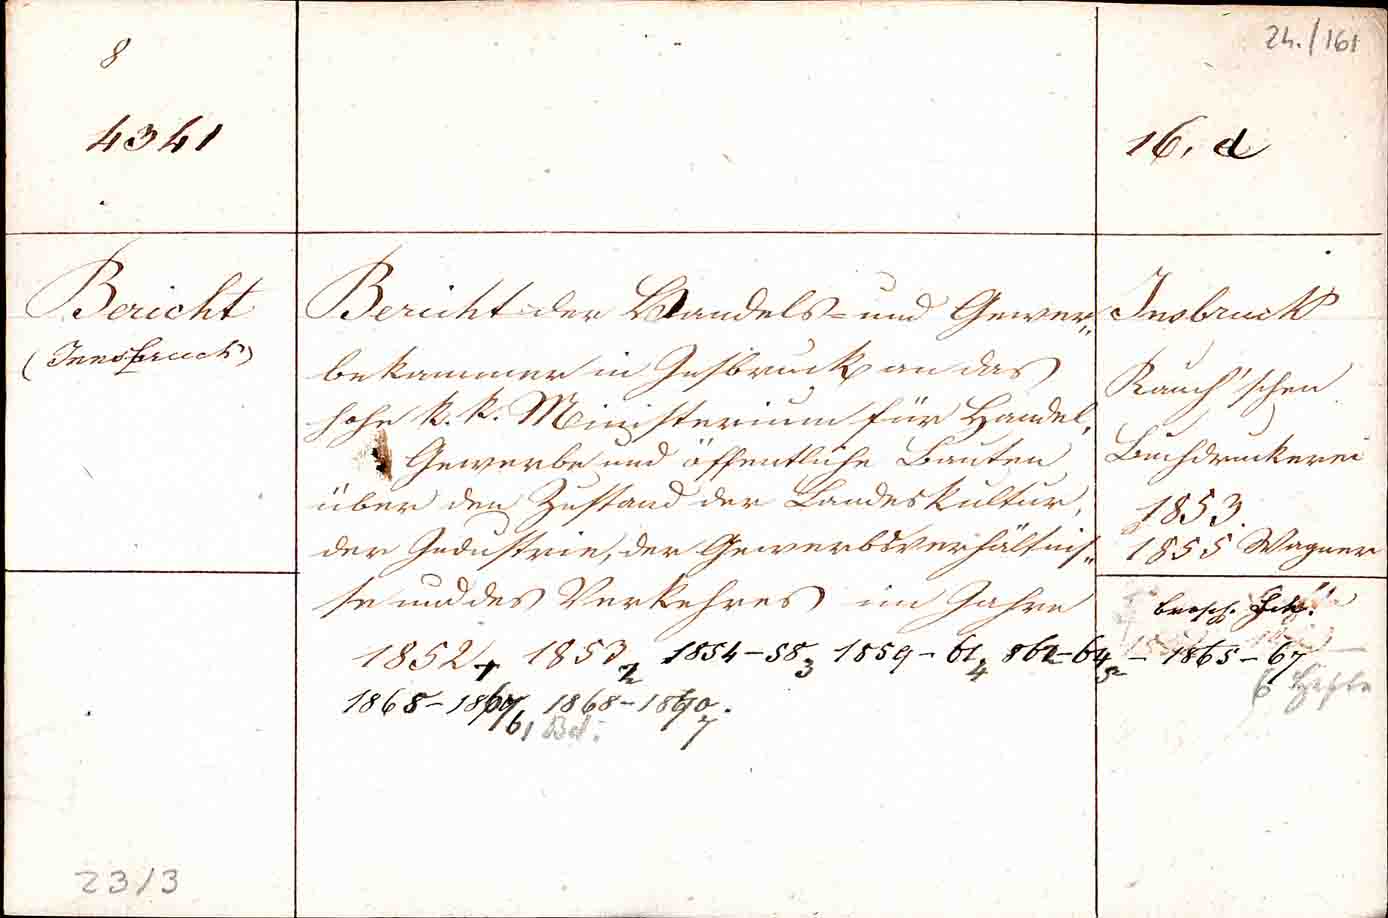 8
24./161
4341
16. d
Bericht
(Innsbruck)
Bericht der Handels- und Gewer„
bekammer in Insbruck an das
hohe k. k. Ministerium für Handel,
Gewerbe und öffentliche Bauten
über den Zustand der Landeskultur,
der Industrie, der Gewerbsverhältnis„
se und des Verkehres im Jahre
1852 1 1853 2 1854-58 3 1859-61 4 862-64 5 - 1865-67
1868- 6 Bd. 1868-1870. 7
Insbruck
Rauch'schen
Buchdruckerei
1853.
1855 Wagner
brosch.
6 Hefte
23/3